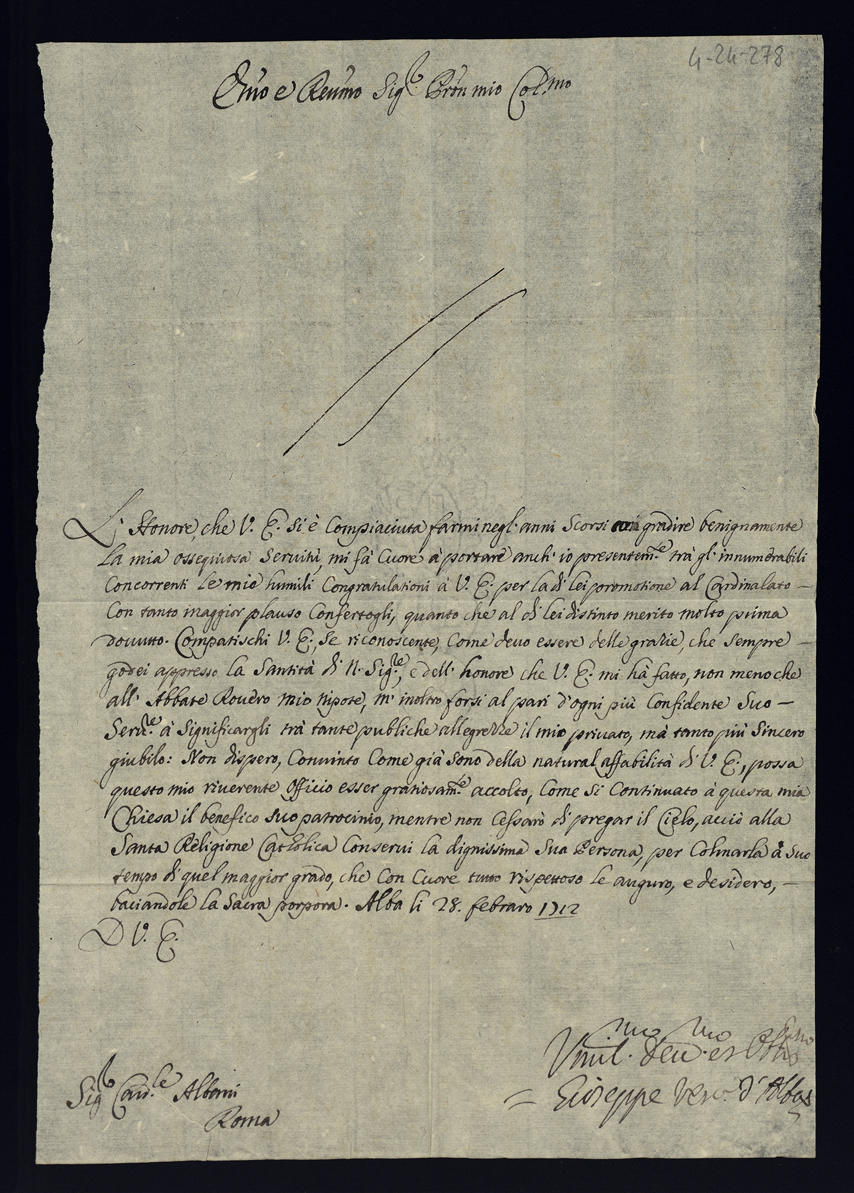 4-24-278
Em̃o e Reum̃o Sig.r Prõn mio Col.mo
L'Honore, che V. E. si è Compiaciuta farmi negl'anni Scorsi gradire benignamente
la mia ossequiosa Servitù, mi fà Cuore à portare anch'io presentem.te trà gl'innumerabili
Concorrenti le mie humili Congratulationi à V. E. per la di lei promotione al Cardinalato –
Con tanto maggior plauso Confertogli, quanto che al di lei distinto merito molto prima
dovuto. Compatischi V. E., se riconoscente, Come devo essere delle grazie, che sempre –
godei appresso la Santità di N. Sig.re, e dell'honore che V. E. mi hà fatto, non meno che
all'Abbate Rovero mio Nipote, m'inoltro forsi al pari d'ogni più Confidente Suo –
Serv.re à Significargli trà tante publiche allegrezze il mio privato, mà tanto più Sincero
giubilo: Non dispero, Convinto Come già sono della natural affabilità di V. E., possa
questo mio riverente Officio esser gratiosam.te accolto, Come Si Continuato à questa mia
Chiesa il benefico Suo patrocinio, mentre non Cessarò di pregar il Cielo, acciò alla
Santa Religione Catholica Conservi la dignissima Sua Persona, per Colmarla à Suo
tempo di quel maggior grado, che Con Cuore tutto rispettoso le auguro, e desidero, –
baciandole la Sacra porpora. Alba li 28. febraro 1712
D V. E.
Sig.r Card.le Albani
Roma
Umil.mo Dev.mo et Obb.mo
Giuseppe Vesc.o d'Alba